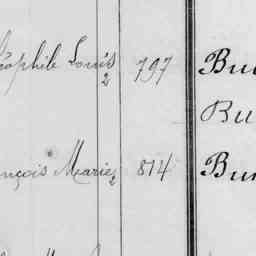 éophile Louis 2 797 Bu
Bu
nçois Marie 2 814 Bu